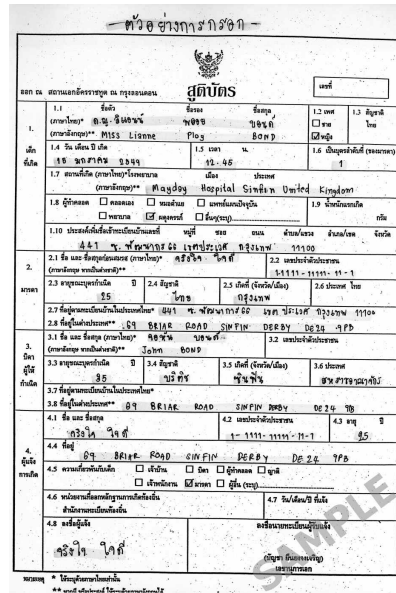 - ตัวอย่างการกรอก -
ออก ณ สถานเอกอัครราชทูต ณ กรุงลอนดอน
สูติบัตร
เลขที่
1.
เด็ก
ที่เกิด
1.1 ชื่อตัว ชื่อรอง ชื่อสกุล
(ภาษาไทย)* ด.ญ. ลีแอนน์ พลอย บอนด์
(ภาษาอังกฤษ)** Miss Lianne Ploy BOND
1.2 เพศ
ชาย
หญิง
1.3 สัญชาติ
ไทย
1.4 วัน เดือน ปี เกิด
15 มกราคม 2549
1.5 เวลา น.
12.45
1.6 เป็นบุตรลำดับที่ (ของมารดา)
1
1.7 สถานที่เกิด (ภาษาไทย)*โรงพยาบาล เมือง ประเทศ
(ภาษาอังกฤษ)** Mayday Hospital Sinfin United Kingdom
1.8 ผู้ทำคลอด คลอดเอง หมอตำแย แพทย์แผนปัจจุบัน
พยาบาล ผดุงครรภ์ อื่นๆ(ระบุ)
1.9 น้ำหนักแรกเกิด
กรัม
1.10 ประสงค์เพิ่มชื่อเข้าทะเบียนบ้านเลขที่ หมู่ที่ ซอย ถนน ตำบล/แขวง อำเภอ/เขต จังหวัด
441 ซ. พัฒนาการ 66 เขตประเวศ กรุงเทพ 11100
2.
มารดา
2.1 ชื่อ และ ชื่อสกุลก่อนสมรส (ภาษาไทย)* จริงใจ ใจดี
(ภาษาอังกฤษ หากเป็นต่างชาติ)**
2.2 เลขประจำตัวประชาชน
1-1111-11111-11-1
2.3 อายุขณะบุตรกำเนิด ปี
25
2.4 สัญชาติ
ไทย
2.5 เกิดที่ (จังหวัด/เมือง)
กรุงเทพ
2.6 ประเทศ ไทย
2.7 ที่อยู่ตามทะเบียนบ้านในประเทศไทย* 441 ซ. พัฒนาการ 66 เขต ประเวศ กรุงเทพ 11100
2.8 ที่อยู่ในต่างประเทศ** 69 BRIAR ROAD SINFIN DERBY DE24 9PB
3.
บิดา
ผู้ให้
กำเนิด
3.1 ชื่อ และ ชื่อสกุล (ภาษาไทย)* จอห์น บอนด์
(ภาษาอังกฤษ หากเป็นต่างชาติ)** John BOND
3.2 เลขประจำตัวประชาชน
3.3 อายุขณะบุตรกำเนิด ปี
35
3.4 สัญชาติ
บริติช
3.5 เกิดที่ (จังหวัด/เมือง)
ซินฟิน
3.6 ประเทศ
สหราชอาณาจักร
3.7 ที่อยู่ตามทะเบียนบ้านในประเทศไทย*
3.8 ที่อยู่ในต่างประเทศ** 69 BRIAR ROAD SINFIN DERBY DE24 9PB
4.
ผู้แจ้ง
การเกิด
4.1 ชื่อ และ ชื่อสกุล
จริงใจ ใจดี
4.2 เลขประจำตัวประชาชน
1-1111-11111-11-1
4.3 อายุ ปี
25
4.4 ที่อยู่
69 BRIAR ROAD SINFIN DERBY DE24 9PB
4.5 ความเกี่ยวพันกับเด็ก เจ้าบ้าน บิดา ผู้ทำคลอด ญาติ
เจ้าพนักงาน มารดา ผู้อื่น (ระบุ)
4.6 หน่วยงานที่ออกหลักฐานการเกิดท้องถิ่น
สำนักงานทะเบียนท้องถิ่น
4.7 วัน/เดือน/ปี ที่แจ้ง
4.8 ลงชื่อผู้แจ้ง
จริงใจ ใจดี
ลงชื่อนายทะเบียนผู้รับแจ้ง
เลขานุการเอก
SAMPLE
หมายเหตุ * ให้ระบุด้วยภาษาไทยเท่านั้น